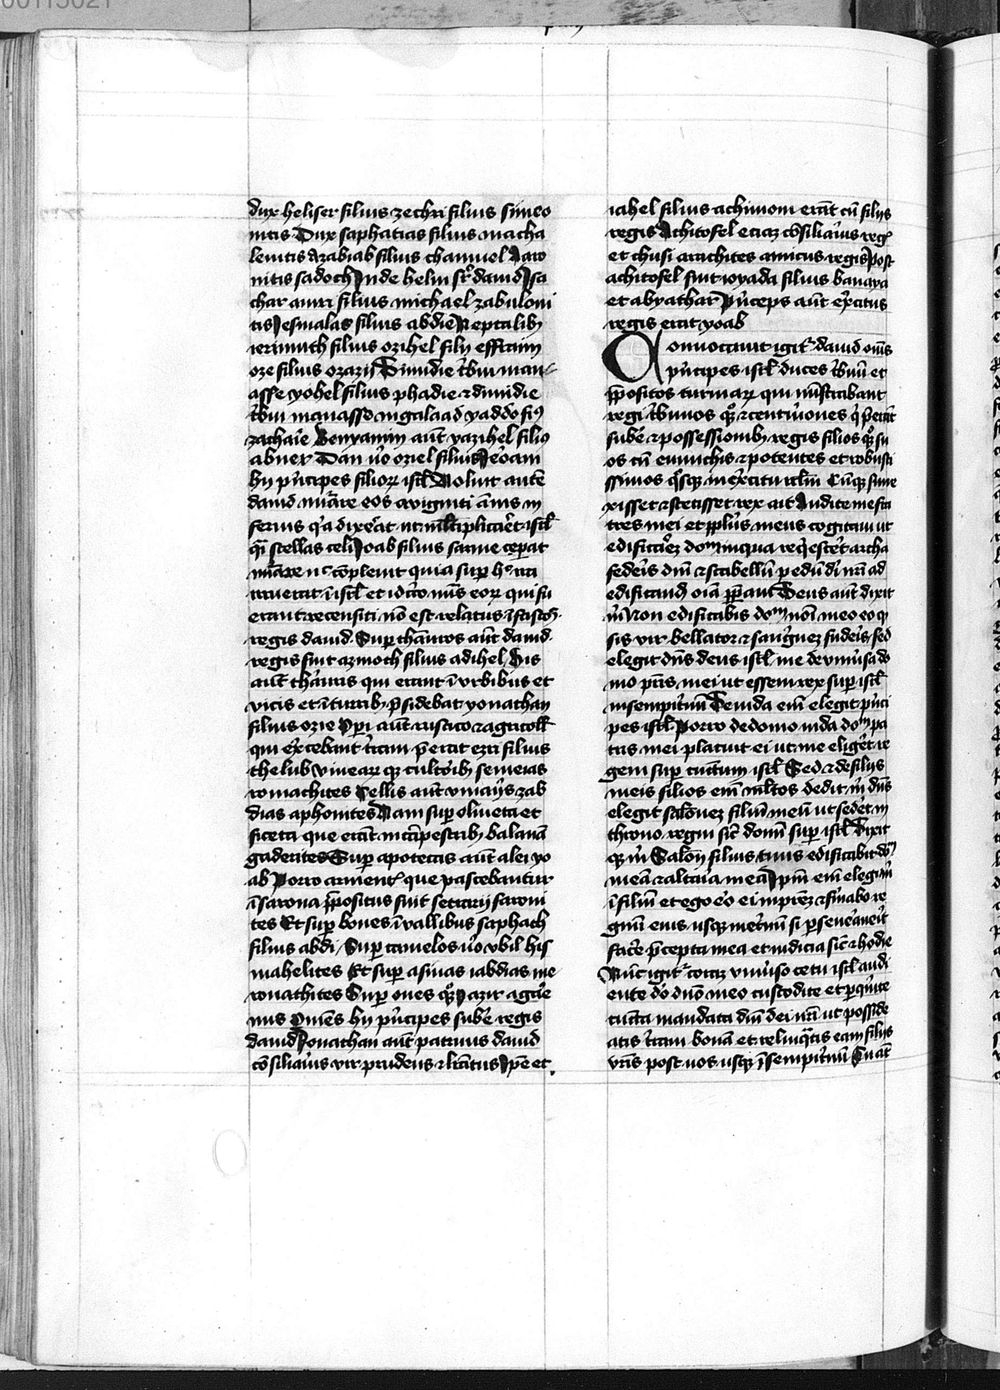 dux heliser filius zechri filius simeo
nitis Dux saphatias filius macha
leuitis Azabiab filius chamuel Aaro
nitis sadoch Jnde heliu fr̄ dauid Jsa
char amri filius michael zabuloni
tis Jesmalas filius abdie Neptalib3
ierimuth filius ozihel filij effraim
oze filius ozazij Dimidie tbui man-
asse yohel filius phadie ⁊ dimidie
tbui manasse in galaad yaddo fi9
zacharie Benyamin aut̄ yazihel filius
abner Dan u̇o ozriel filius Jeroam
hij ṗncipes filioꝝ isrl̄ Noluit aute̅
dauid nu̅are eos a viginti a̅nis in
ferius q̇a dixerat ut ml̅tiplicar̅et isrl̄
q̇i stellas celi Joab filius saruie ceperat
nu̅are nc̄ co̅pleuit quia sup̱ hc̄ ira
irruerat i̅ isrl̄ et idcirco nu̅s eoꝝ qui fu
erant recensiti no̅ est relatus i̅ fastos
regis dauid Sup̱ thauros aut̄ dauid
regis fuit azmoth filius adihel His
aut̄ th̅auris qui erant i̅ vrbibus et
vicis et i̅ turrib3 p̄sidebat yonathan
filius ozie Op̱i aut̄ rustico ⁊ agricoll̄
qui ex̱cebant t̅ram p̄erat ezri filius
thelub Vinearꝝ q3 cultorib3 semeias
romathites Cellis aut̄ vinarijs zab
dias aphonites Nam sup̱ oliueta et
ficeta que era̅t in ca̅pestrib3 balana̅
gaderites Sup̱ apotecas aut̄ alei yo
ab Porro arment̄ que pascebantur
i̅ sarona p̄positus fuit setrarij saroni
tes Et sup̱ boues i̅ vallibus saphach
filius abdi Sup̱ camelos u̇o vbil his
mahelites Et sup̱ asinas iabdias me
ronathites Sup̱ oues q3 yazir agare
nus Omnes hij ṗncipes sub̅e regis
dauid Jonathan aut̄ patruus dauid
co̅siliarius vir prudens ⁊ litt̅atus Jp̄e et
iahel filius achimoni era̅t cu̅ filijs
regis Achitofel etiaʒ co̅siliarius reg̅
et chusi arachites amicus regis Post
achitofel fuit ioyada filius banaya
et abyathar Ṗnceps aut̄ ex̱citus
regis erat yoab
Conuocauit igit̄ dauid om̅s
ṗncipes isrl̄ duces tbuu̅ et
p̄positos turmarꝝ qui mi̅strabant
regi tbunos q3 ⁊ centuriones q̇ p̄erant
sub̅e ⁊ possessionib3 regis filios q3 su
os cu̅ eunuchis ⁊ potentes et robusti
ssimos q̇sq3 in ex̱citu irl̄m Cu̅q3 surre
xisset ⁊ stetisset rex ait Audite me fra
tres mei et pp̄lus meus cogitaui ut
edificareʒ domu̅ in qua reqesceret archa
federis dn̄i ⁊ scabellu̅ pedu̅ di̅ n̅ri ad
edificand̅ oi̅a p̄paui Deus aut̄ dixit
m̄ Non edificabis domu̅ noi̅ meo eo q̇
sis vir bellator ⁊ sangueʒ fuderis sed
elegit dn̄s deus isrl̄ me de vniu̅sa do
mo pr̄is mei ut essem rex sup̱ isrl̄
in sempiternu̅ De iuda eni̅ elegit ṗnci
pes isrl̄ Porro de domo iuda domu̅ pa
tris mei placuit ei ut me eligeret re
gem sup̱ cunctum isrl̄ Sed ⁊ de filijs
meis filios eni̅ m̄ltos dedit m̄ dn̄s
elegit salomoneʒ filiu̅ meu̅ ut sederet in
throno regni sic̄ domi̅ sup̱ isrl̄ Dixit
q3 m̄ Salo̅n filius tuus edificabit do̅
mea̅ ⁊ altaria mea Jpm̄ eni̅ elegi m̄
i̅ filiu̅ et ego ero ei i̅ pat̅reʒ ⁊ firmabo re
gnu̅ eius usq3 in et̅nu̅ si p̱seuerau̅it
fac̅e p̄cepta mea et iudicia sic̄ ⁊ hodie
Nu̅c igit̄ coraʒ vniu̅so cetu isrl̄ audi
ente do̅ dn̄o meo custodite et p̱quirite
cuncta mandata dn̄i dei n̅ri ut posside
atis t̅ram bona̅ et relinq̇tis eam filijs
vr̄is post uos usq3 i̅ sempiternu̅ Tu aut̄